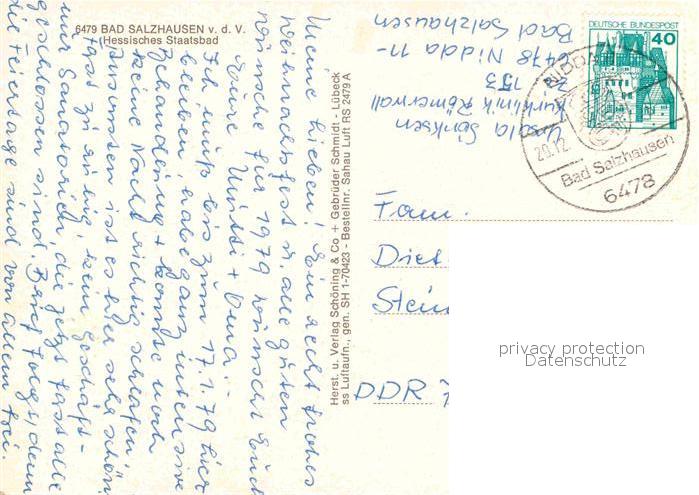 6479 BAD SALZHAUSEN v. d. V.
(Hessisches Staatsbad
Meine Lieben! Ein recht frohes
Weihnachtsfest u. alle guten
Wünsche für 1979 wünscht Euch
Eure Mutti + Oma.
Ich muß bis zum 17.1.79 hier
bleiben, habe ganz intensive
Behandlung + konnte noch
keine Nacht richtig schlafen
Ansonsten ist es hier sehr schön
fast zu ruhig, kein Geschäft -
nur Sanatorien, die jetzt fast alle
geschlossen sind.
die Feiertage sind vor allem frei.
Herst. u. Verlag Schöning & Co + Gebrüder Schmidt - Lübeck
ss Luftaufn., gen. SH 1-70423 - Bestellnr. Sahau Luft RS 2479 A
Kurklinik Römerwall
Zi. 153
6478 Nidda 11-
Bad Salzhausen
DEUTSCHE BUNDESPOST
40
NIDDA
20.12
Bad Salzhausen
6478
Fam.
Diet
Stein
DDR
privacy protection
Datenschutz